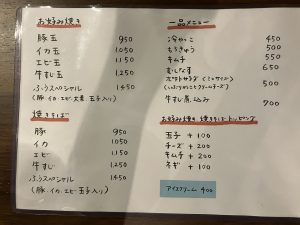 お好み焼き
豚玉 950
イカ玉 1050
エビ玉 1150
牛すじ玉 1,250
ふうスペシャル 1450
(豚、イカ、エビ、玉子入り)
焼きそば
豚 950
イカ 1050
エビ 1150
牛すじ 1,250
ふうスペシャル 1450
(豚、イカ、エビ、玉子入り)
一品メニュー
冷やっこ 450
もろきゅう 500
キムチ 550
むしなす 650
500
牛すじ煮込み 700
お好み焼き 焼きそばトッピング
玉子 +100
チーズ +200
キムチ +200
ネギ +100
アイスクリーム 400